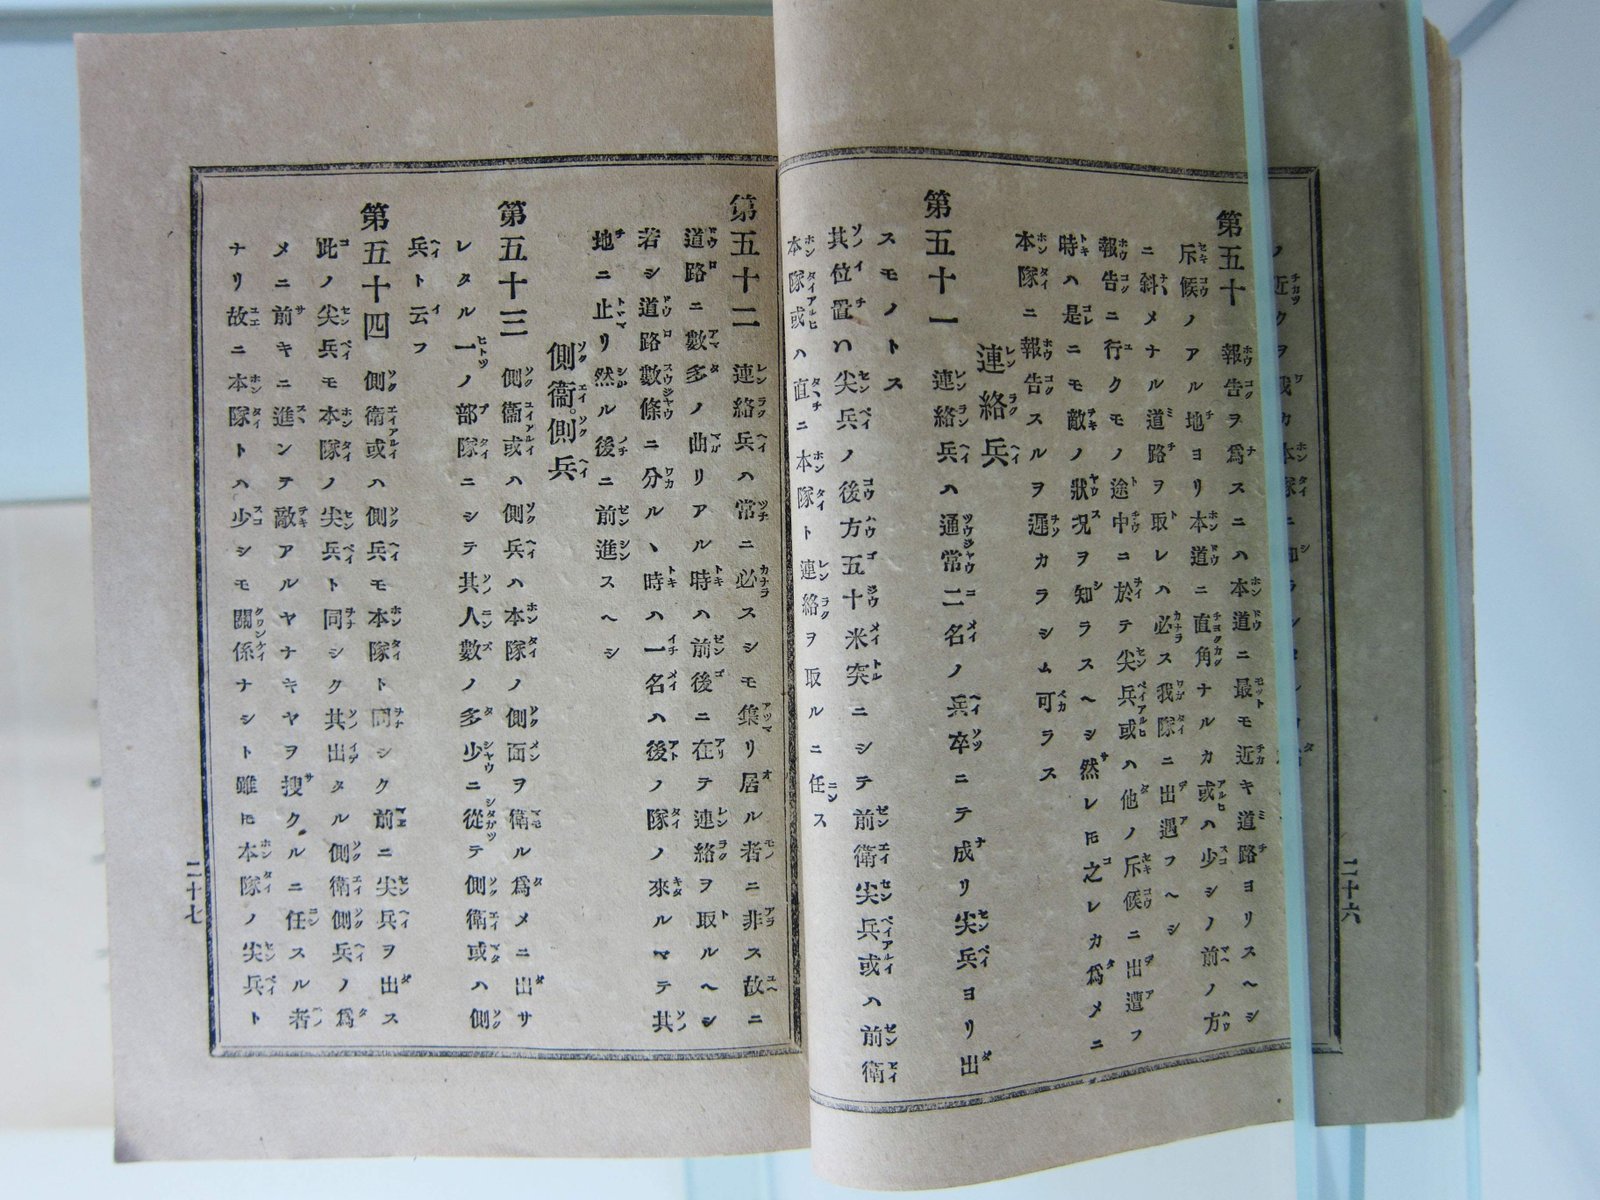 第五十 報告ヲ爲スニハ本道ニ最モ近キ道路ヨリスヘシ
斥候ノアル地ヨリ本道ニ直角ナルカ或ハ少シノ前ノ方
ニ斜メナル道路ヲ取レハ必ス我隊ニ出遇フヘシ
報告ニ行クモノ途中ニ於テ尖兵或ハ他ノ斥候ニ出遭フ
時ハ是ニモ敵ノ狀況ヲ知ラスヘシ然レ𪜈之レカ爲メニ
本隊ニ報告スルヲ遲カラシム可ラス
連絡兵
第五十一 連絡兵ハ通常二名ノ兵卒ニテ成リ尖兵ヨリ出
スモノトス
其位置ハ尖兵ノ後方五十米突ニシテ前衛尖兵或ハ前衛
本隊或ハ直ニ本隊ト連絡ヲ取ルニ任ス
二十六
第五十二 連絡兵ハ常ニ必スシモ集リ居ル者ニ非ス故ニ
道路ニ數多ノ曲リアル時ハ前後ニ在テ連絡ヲ取ルヘシ
若シ道路數條ニ分ルヽ時ハ一名ハ後ノ隊ノ來ルマテ其
地ニ止リ然ル後ニ前進スヘシ
側衞。側兵
第五十三 側衞或ハ側兵ハ本隊ノ側面ヲ衛ル爲メニ出サ
レタル一ノ部隊ニシテ其人數ノ多少ニ從テ側衛或ハ側
兵ト云フ
第五十四 側衛或ハ側兵モ本隊ト同シク前ニ尖兵ヲ出ス
此ノ尖兵モ本隊ノ尖兵ト同シク其出タル側衛側兵ノ爲
メニ前キニ進ンテ敵アルヤナキヤヲ搜クルニ任スル者
ナリ故ニ本隊トハ少シモ關係ナシト雖𪜈本隊ノ尖兵ト
二十七